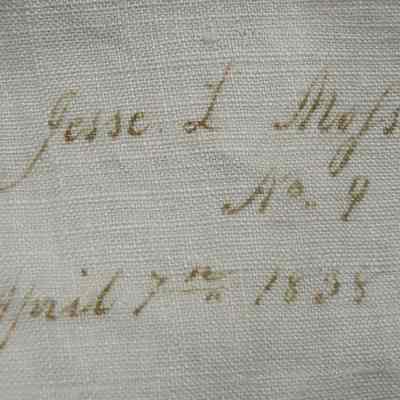 Jesse. L Moss
No. 9
April 7th 1838